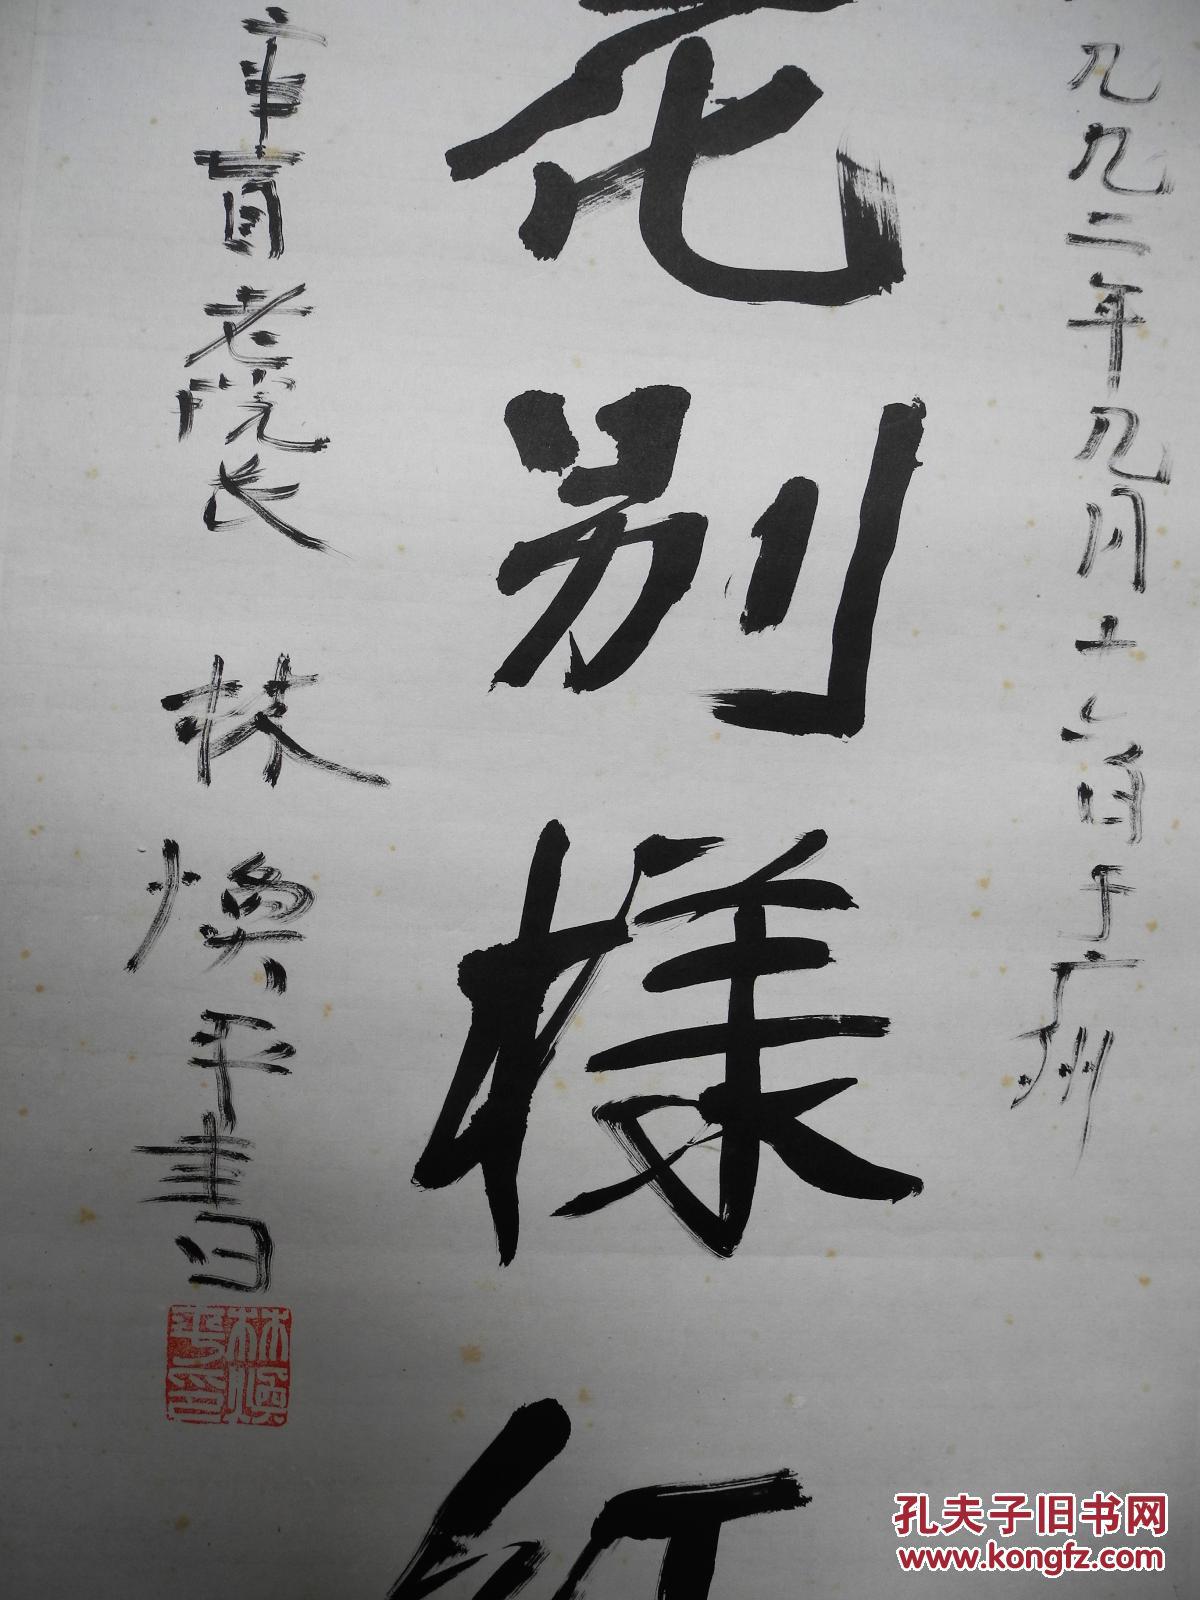 九九二年九月十六日于广州
花别样
老院长 林煥平書
林煥平印
孔夫子旧书网
www.kongfz.com